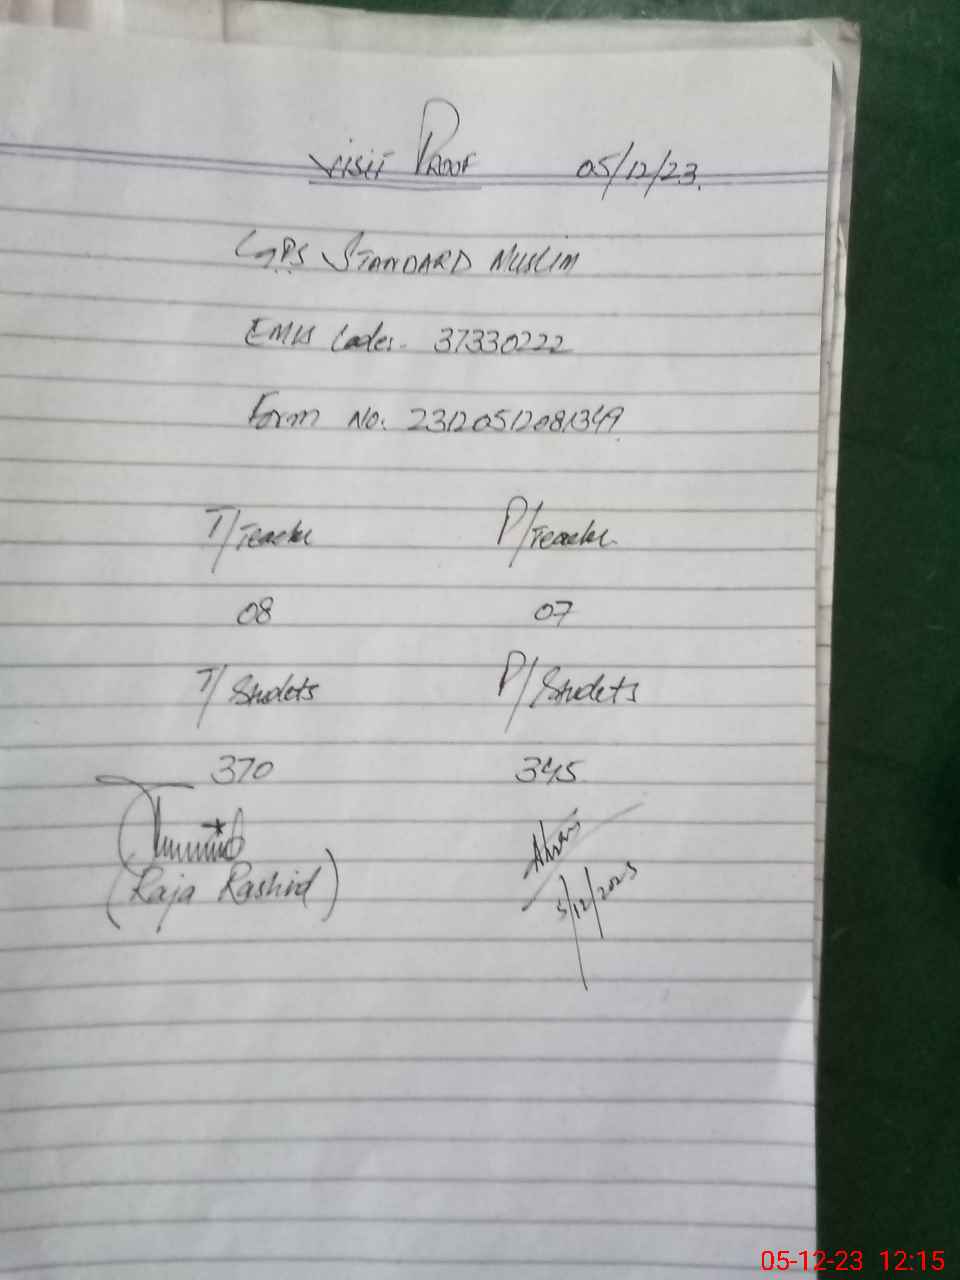 Visit Proof 05/12/23.
G.P.S Standard Muslim
EMIS Code:- 37330222
Form No: 23120512081349
T/Teacher P/Teacher
08 07
T/Studets P/Studets
370 345
(Raja Rashid)
5/12/2023
05-12-23 12:15